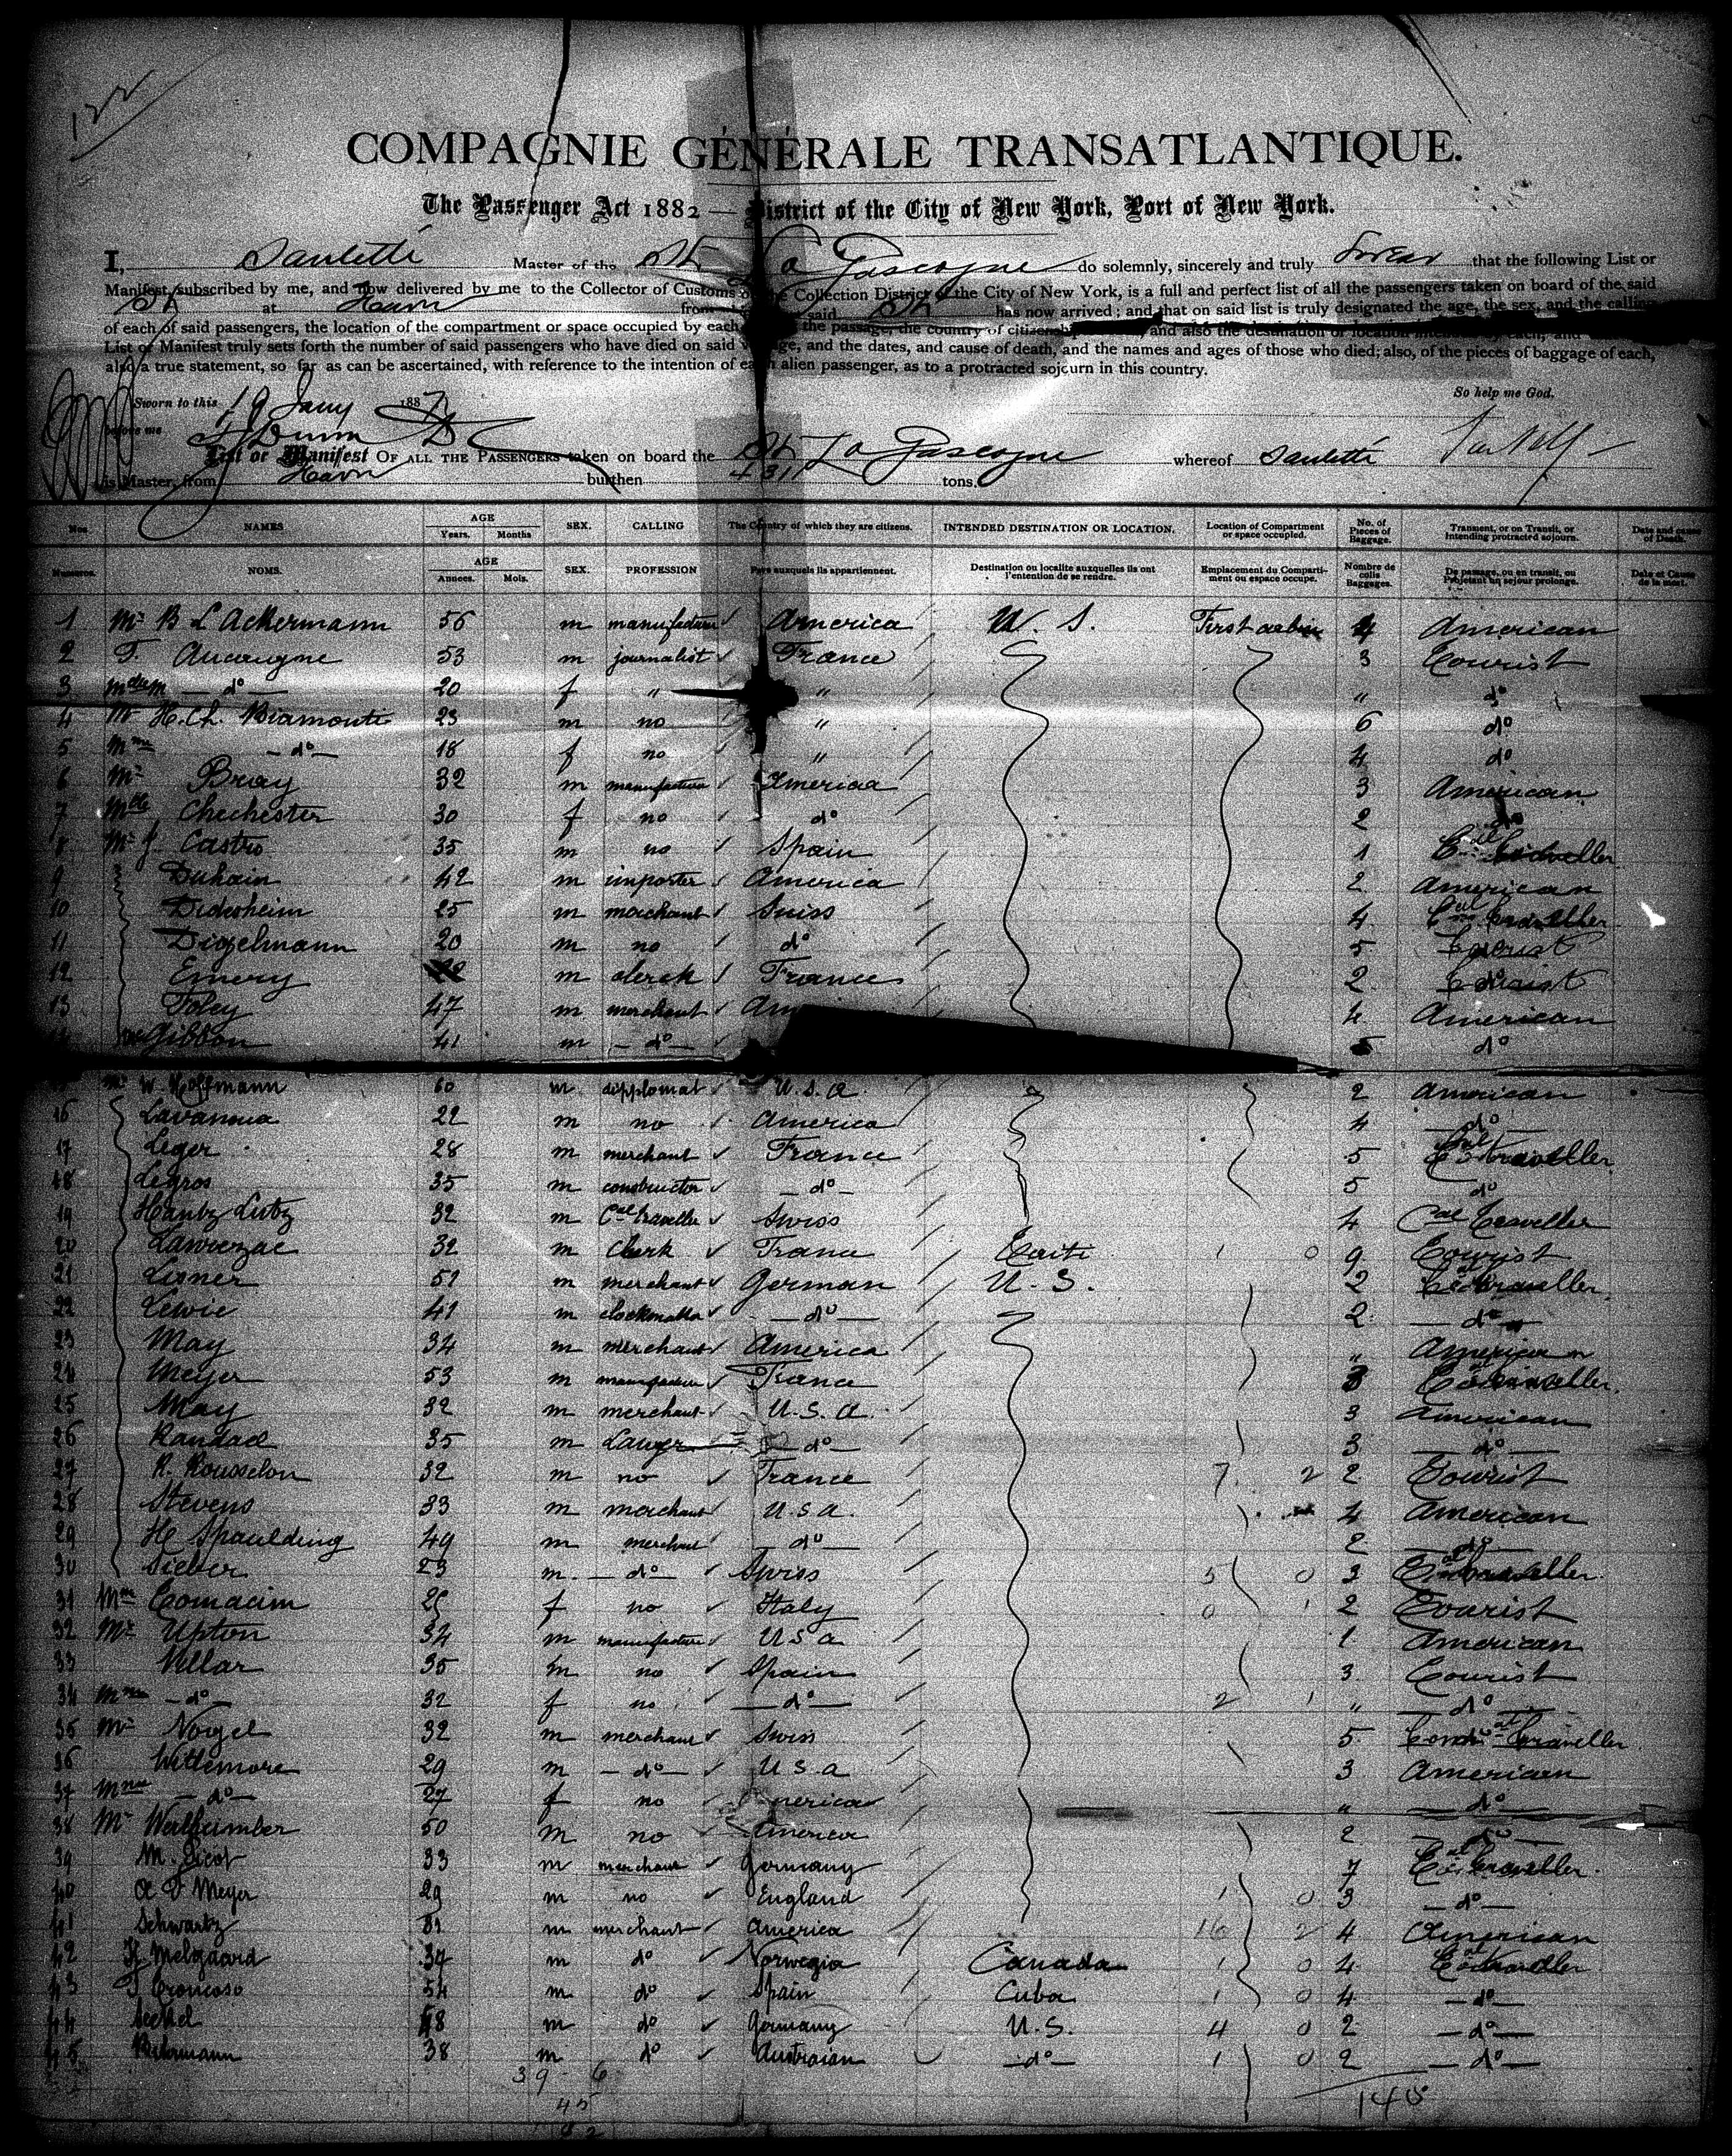 122
COMPAGNIE GÉNÉRALE TRANSATLANTIQUE.
The Passenger Act 1882 — District of the City of New York, Port of New York.
I, Santelli Master of the Str La Gascogne do solemnly, sincerely and truly swear that the following List or
Manifest, subscribed by me, and now delivered by me to the Collector of Customs of the Collection District of the City of New York, is a full and perfect list of all the passengers taken on board of the said
Str at Havre from said Str has now arrived; and that on said list is truly designated the age, the sex, and the calling
of each of said passengers, the location of the compartment or space occupied by each the passage, the country of citizenship and also the destination or location
List or Manifest truly sets forth the number of said passengers who have died on said voyage, and the dates, and cause of death, and the names and ages of those who died; also, of the pieces of baggage of each,
also a true statement, so far as can be ascertained, with reference to the intention of each alien passenger, as to a protracted sojourn in this country.
Sworn to this 19 Jany 1887 So help me God.
before me
List or Manifest OF ALL THE PASSENGERS taken on board the Str La Gascogne whereof Santelli
is Master, from Havre burthen tons.
Nos NAMES AGE Years. Months SEX. CALLING The Country of which they are citizens. INTENDED DESTINATION OR LOCATION. Location of Compartment or space occupied. No. of Pieces of Baggage. Transient, or on Transit, or Intending protracted sojourn. Date and cause of Death.
Numeros. NOMS. AGE Annees. Mois. SEX. PROFESSION Pays auxquels ils appartiennent. Destination ou localite auxquelles ils ont l'entention de se rendre. Emplacement du Compartiment ou espace occupe. Nombre de colis Baggages. De passage, ou en transit, ou Projetant un sejour prolonge. Date et Cause de la mort.
1 Mr B L Ackermann 56 m manufacture America U. S. First cabin 4 American
2 F. Aucaigne 53 m journalist France 3 Tourist
3 — do — 20 f " " " do
4 Mr H. Ch. Biamonti 23 m no " 6 do
5 Mme — do — 18 f no " 4 do
6 Mr Bray 32 m manufacture America 3 American
7 Mlle Chechester 30 f no do 2 do
8 Mr J. Castro 35 m no Spain 1 Cal traveller
9 Duhain 42 m importer America 2 American
10 Didesheim 25 m merchant Suiss 4 Cal traveller
11 Digelmann 20 m no do 5 Tourist
12 Emery m clerck France 2 Tourist
13 Foley 47 m merchant Am 4 American
14 Gibbon 41 m — do — 5 do
Mr W. Hoffmann 60 m dipplomat U.S.A 2 American
16 Lavanoua 22 m no America 4 — do —
17 Leger 28 m merchant France 5 Cal traveller
18 Legros 35 m constructor — do — 5 do
19 Hantz Lutz 32 m Cal traveller Swiss 4 Cal Traveller
20 Lawrezac 32 m Clerk France 1 0 9 Tourist
21 Lisner 51 m merchant German U. S. 2 Cal traveller
22 Lewie 41 m — do — 2 — do —
23 May 34 m merchant America " American
24 Meyer 53 m manufacture France 3 Cal traveller
25 May 32 m merchant U.S.A. 3 American
26 Randad 35 m Lawyer — do — 3 — do —
27 R. Rousselon 32 m no France 7 2 2 Tourist
28 Stevens 33 m merchant U.S.A. 4 American
29 H Spaulding 49 m merchant — do — 2 — do —
30 Sieber 23 m — do — Swiss 5 0 3 Cal traveller
31 Mme Tomacim 25 f no Italy 0 1 2 Tourist
32 Mr Upton 34 m manufacture U S A 1 American
33 Villar 35 m no Spain 3 Tourist
34 Mme — do — 32 f no — do — 2 1 " — do —
35 Mr Vogel 32 m merchant Swiss 5 traveller
36 Wittemore 29 m — do — U S A 3 American
37 Mme — do — 27 f no America " — do —
38 Mr Wertheimber 50 m no America 2 — do —
39 M. Picot 33 m merchant Germany 7 Cal traveller
40 A V Meyer 29 m no England 1 0 3 — do —
41 Schwartz 31 m merchant America 16 2 4 American
42 H Melgaard 34 m do Norwegia Canada 1 0 4 Cal traveller
43 T Troncoso 54 m do Spain Cuba 1 0 4 — do —
44 Seckel 48 m do Germany U.S. 4 0 2 — do —
45 38 m do Austraian — do — 1 0 2 — do —
39 6
45